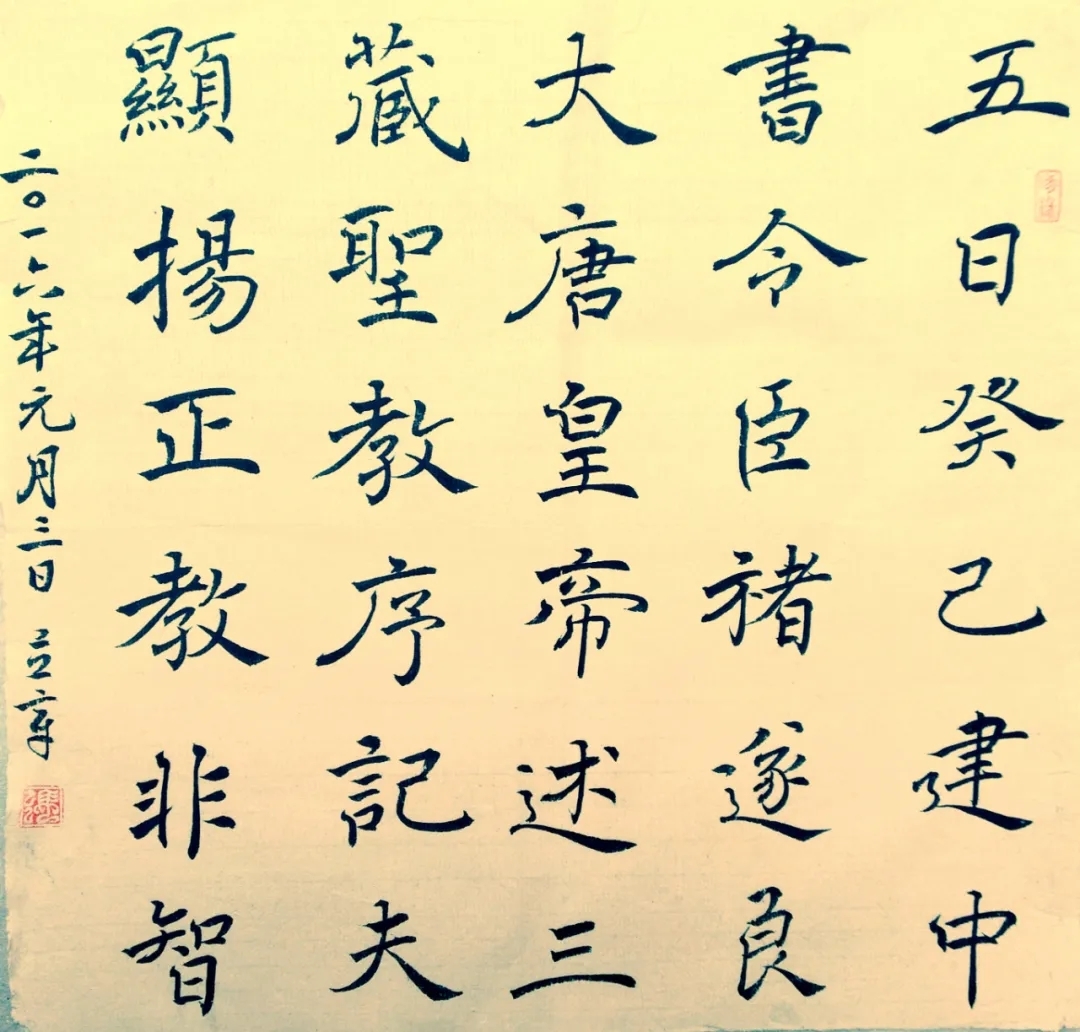 五日癸己建中
書令臣褚遂良
大唐皇帝述三
藏聖教序記夫
顯揚正教非智
二〇一六年元月三日